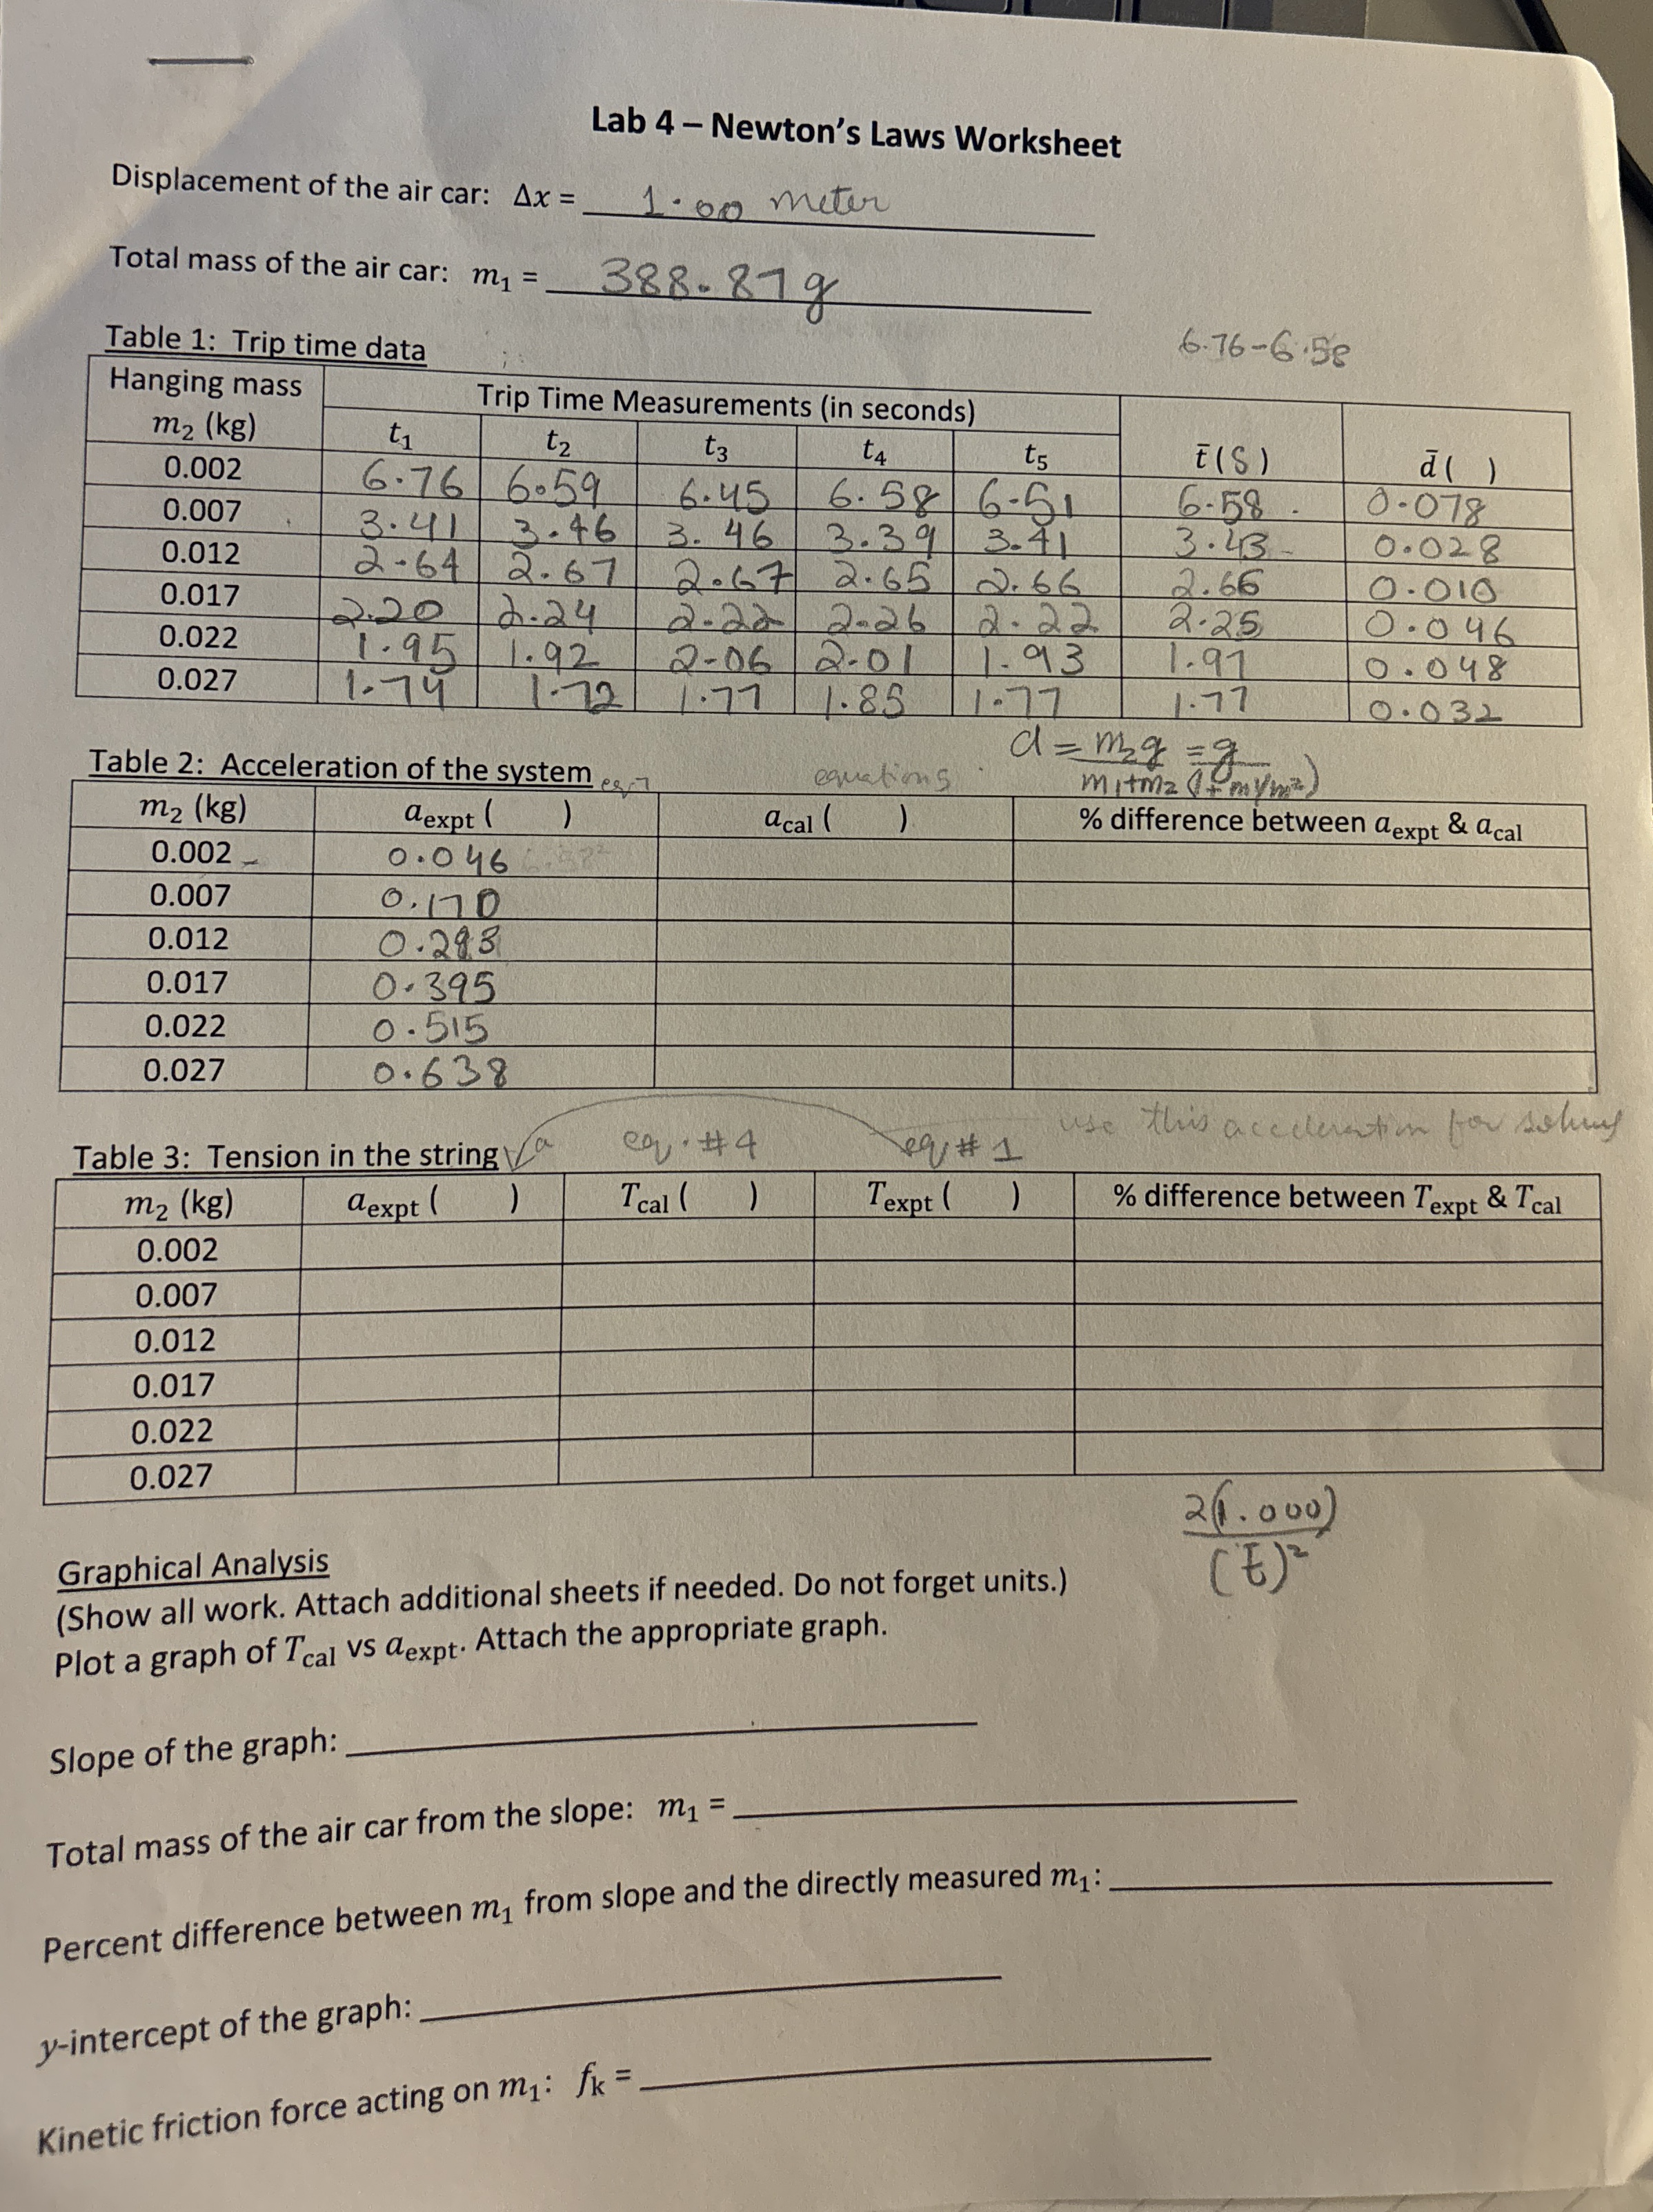 Lab 4 – Newton's Laws Worksheet
Displacement of the air car: Δx = 1.00 meter
Total mass of the air car: m₁ = 388.87g
6.76-6.58
Table 1: Trip time data
Hanging mass m₂ (kg) Trip Time Measurements (in seconds)
t₁ t₂ t₃ t₄ t₅ t̄ (S) d̄ ( )
0.002 6.76 6.59 6.45 6.58 6.51 6.58 0.078
0.007 3.41 3.46 3.46 3.39 3.41 3.43 0.028
0.012 2.64 2.67 2.67 2.65 2.66 2.66 0.010
0.017 2.20 2.24 2.22 2.26 2.22 2.25 0.046
0.022 1.95 1.92 2.06 2.01 1.93 1.97 0.048
0.027 1.74 1.72 1.77 1.85 1.77 1.77 0.032
a = m₂g/m₁+m₂ = g/(1+m1/m2)
Table 2: Acceleration of the system eq 7 equation 5
m₂ (kg) aexpt ( ) acal ( ) % difference between aexpt & acal
0.002 0.046
0.007 0.170
0.012 0.283
0.017 0.395
0.022 0.515
0.027 0.638
use this acceleration for solving
Table 3: Tension in the string a eq. #4 eq #1
m₂ (kg) aexpt ( ) Tcal ( ) Texpt ( ) % difference between Texpt & Tcal
0.002
0.007
0.012
0.017
0.022
0.027
2(1.000)/(t̄)²
Graphical Analysis
(Show all work. Attach additional sheets if needed. Do not forget units.)
Plot a graph of Tcal vs aexpt. Attach the appropriate graph.
Slope of the graph:
Total mass of the air car from the slope: m₁ =
Percent difference between m₁ from slope and the directly measured m₁:
y-intercept of the graph:
Kinetic friction force acting on m₁: fk =